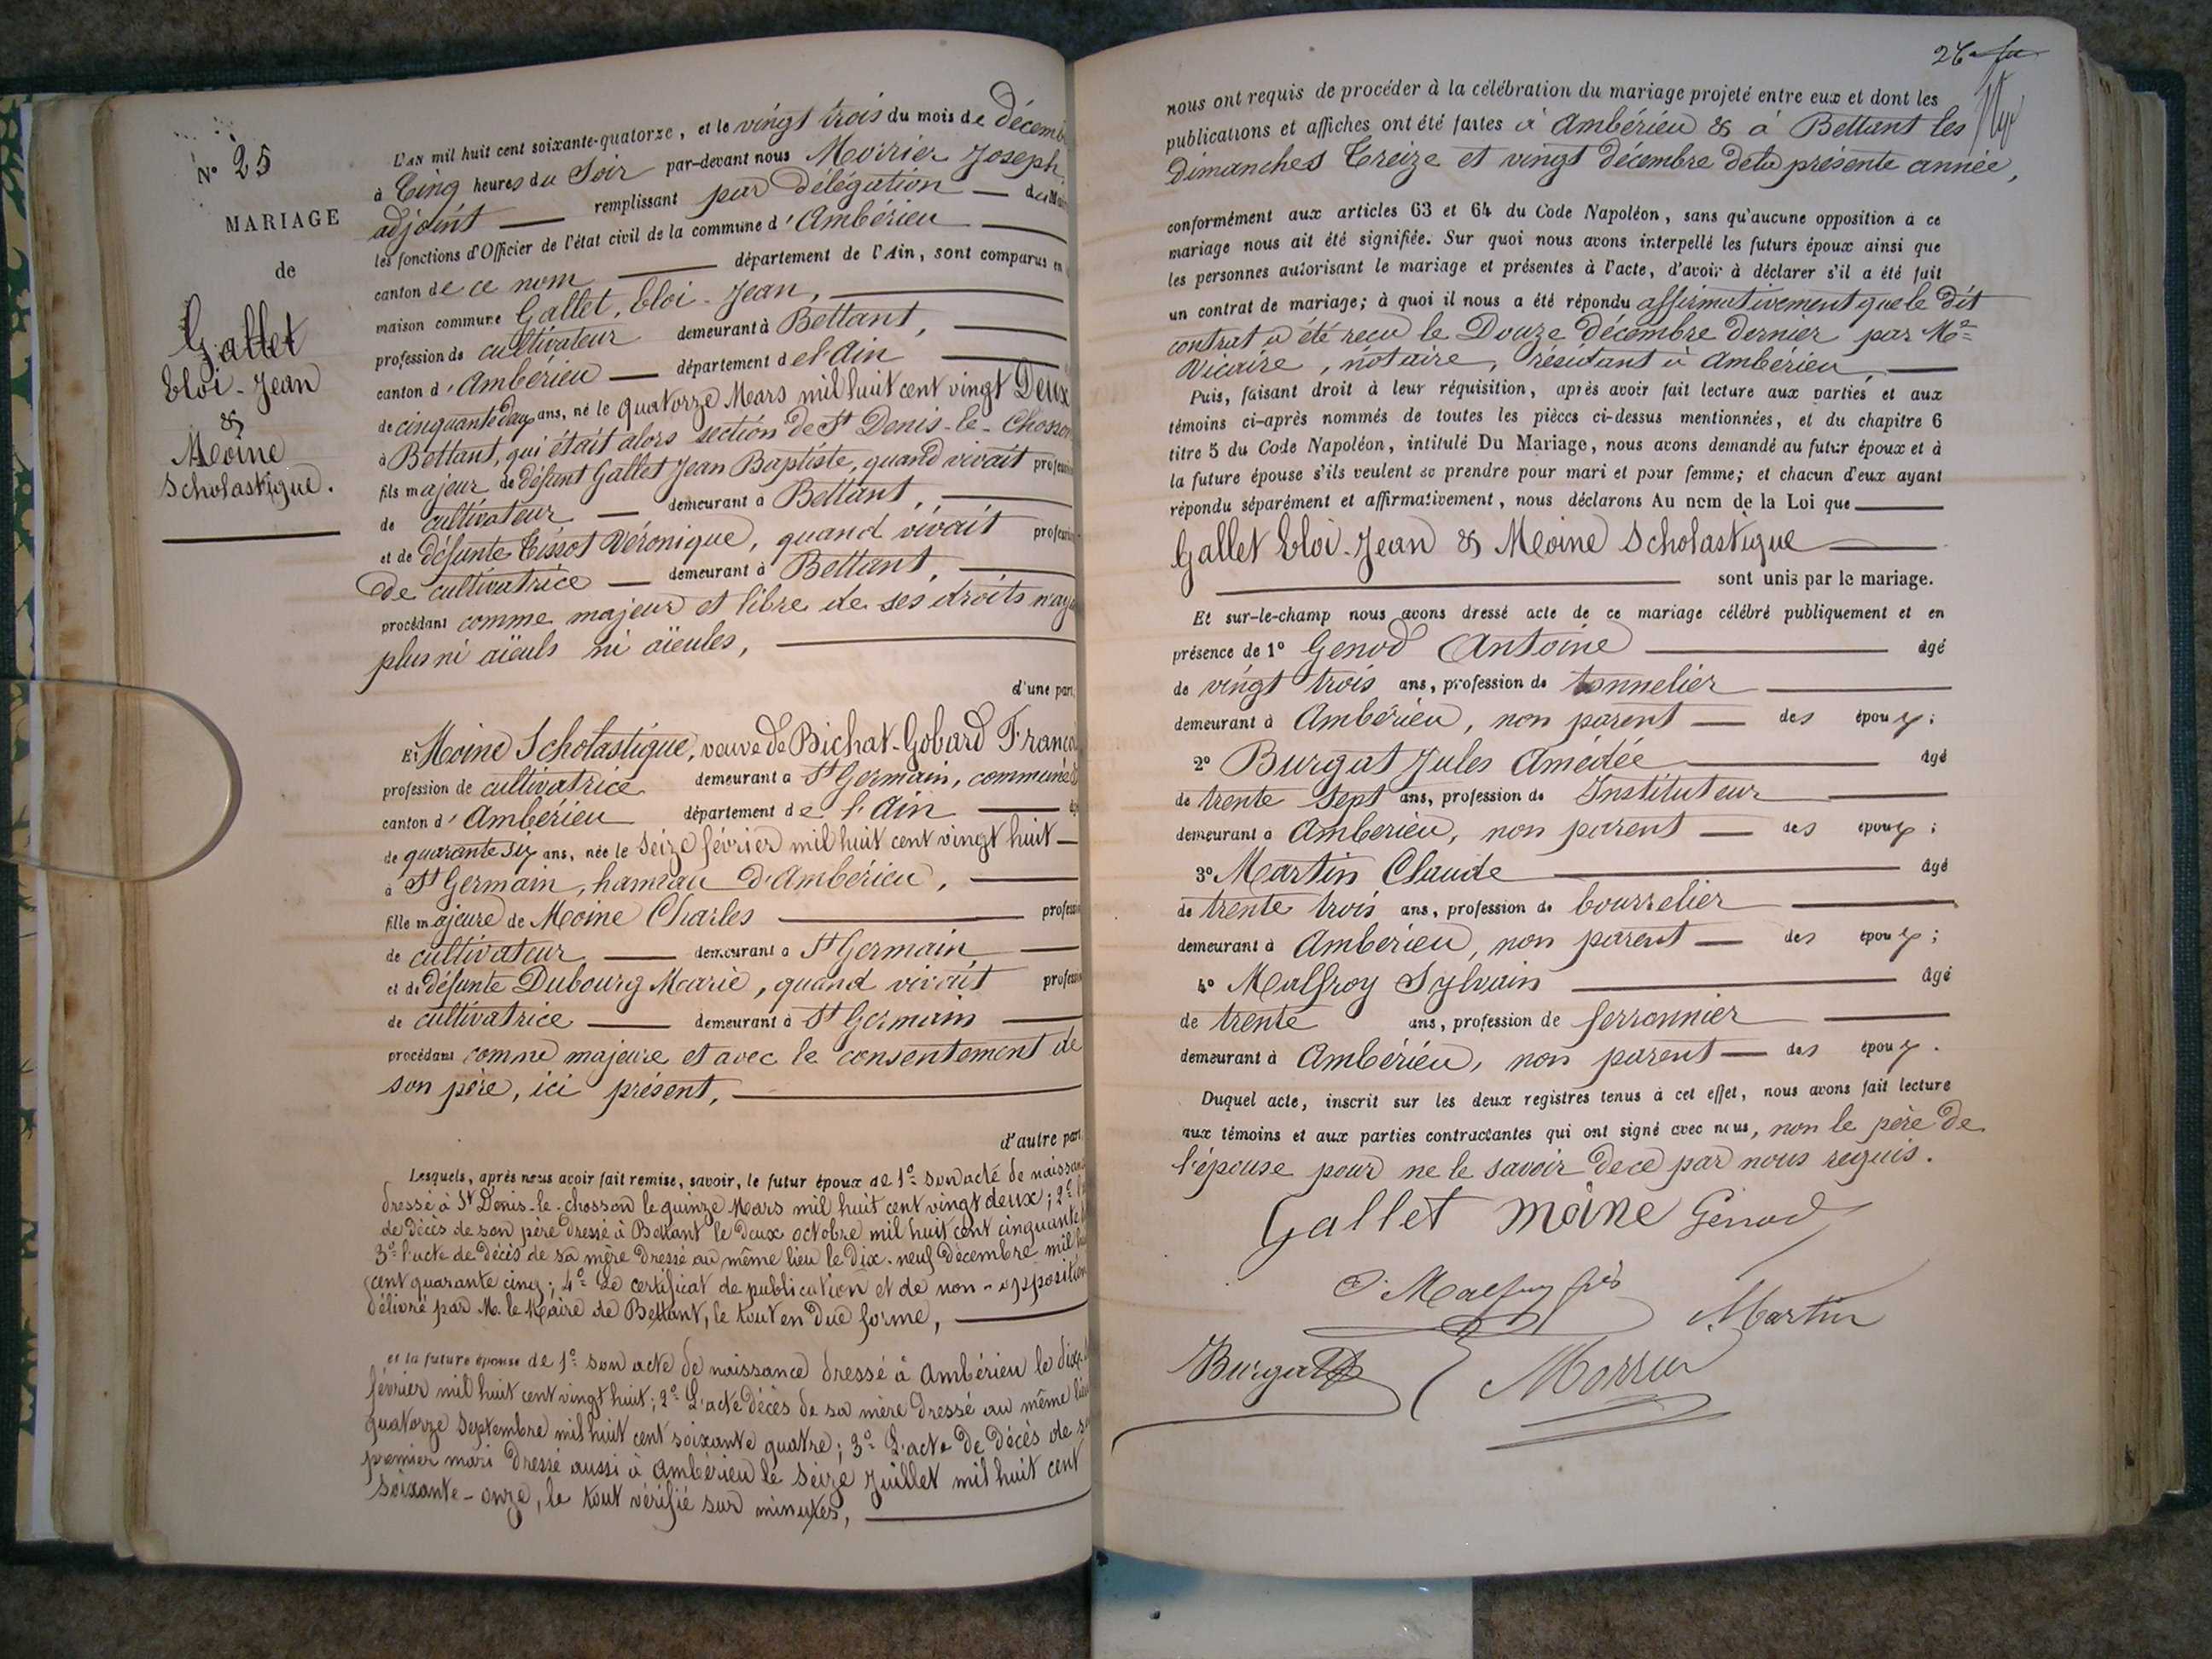 N° 25
MARIAGE
de
Gallet
Eloi-Jean
&
Moine
Scholastique.
L'AN mil huit cent soixante-quatorze, et le vingt trois du mois de décemb
à Cinq heures du Soir par-devant nous Morrier Joseph,
adjoint remplissant par délégation du
les fonctions d'Officier de l'état civil de la commune d'Ambérieu
canton de ce nom département de l'Ain, sont comparus en
maison commune Gallet, Eloi-Jean,
profession de cultivateur demeurant à Bettant,
canton d'Ambérieu département de l'Ain
de cinquante deux ans, né le quatorze Mars mil huit cent vingt Deux
à Bettant, qui était alors section de St Denis-le-Chosson
fils majeur de défunt Gallet Jean Baptiste, quand vivait profession
de cultivateur demeurant à Bettant,
et de défunte Tissot Véronique, quand vivait profession
de cultivatrice demeurant à Bettant,
procédant comme majeur et libre de ses droits n'aya
plus ni aïeuls ni aïeules,
d'une part,
Et Moine Scholastique, veuve de Bichat-Gobard Franço
profession de cultivatrice demeurant à St Germain, commune
canton d'Ambérieu département de l'Ain
de quarante six ans, née le Seize février mil huit cent vingt huit
à St Germain, hameau d'Ambérieu,
fille majeure de Moine Charles profession
de cultivateur demeurant à St Germain,
et de défunte Dubourg Marie, quand vivait profession
de cultivatrice demeurant à St Germain
procédant comme majeure et avec le consentement de
son père, ici présent,
d'autre part.
Lesquels, après nous avoir fait remise, savoir, le futur époux de 1° son acte de naissan
dressé à St Denis-le-chosson le quinze Mars mil huit cent vingt deux; 2°
de décès de son père dressé à Bettant le deux octobre mil huit cent cinquante
3° l'acte de décès de sa mère dressé au même lieu le dix-neuf décembre mil
cent quarante cinq; 4° Le certificat de publication et de non-opposition
délivré par M. le Maire de Bettant, le tout en due forme,
et la future épouse de 1° son acte de naissance dressé à Ambérieu le dix
février mil huit cent vingt huit; 2° L'acte décès de sa mère dressé au même lieu
quatorze septembre mil huit cent soixante quatre; 3° L'acte de décès de s
premier mari dressé aussi à Ambérieu le seize juillet mil huit cent
soixante-onze, le tout vérifié sur minutes,
26
nous ont requis de procéder à la célébration du mariage projeté entre eux et dont les
publications et affiches ont été faites à Ambérieu & à Bettant les
Dimanches Treize et vingt décembre de la présente année,
conformément aux articles 63 et 64 du Code Napoléon, sans qu'aucune opposition à ce
mariage nous ait été signifiée. Sur quoi nous avons interpellé les futurs époux ainsi que
les personnes autorisant le mariage et présentes à l'acte, d'avoir à déclarer s'il a été fait
un contrat de mariage; à quoi il nous a été répondu affirmativement que le dit
contrat a été reçu le Douze décembre dernier par Me
Vicaire, notaire, résidant à Ambérieu,
Puis, faisant droit à leur réquisition, après avoir fait lecture aux parties et aux
témoins ci-après nommés de toutes les pièces ci-dessus mentionnées, et du chapitre 6
titre 5 du Code Napoléon, intitulé Du Mariage, nous avons demandé au futur époux et à
la future épouse s'ils veulent se prendre pour mari et pour femme; et chacun d'eux ayant
répondu séparément et affirmativement, nous déclarons Au nom de la Loi que
Gallet Eloi-Jean & Moine Scholastique
sont unis par le mariage.
Et sur-le-champ nous avons dressé acte de ce mariage célébré publiquement et en
présence de 1° Genod Antoine âgé
de vingt trois ans, profession de tonnelier
demeurant à Ambérieu, non parent des époux;
2° Burgat Jules Amédée âgé
de trente sept ans, profession de Instituteur
demeurant à Ambérieu, non parent des époux;
3° Martin Claude âgé
de trente trois ans, profession de bourrelier
demeurant à Ambérieu, non parent des époux;
4° Malfroy Sylvain âgé
de trente ans, profession de ferronnier
demeurant à Ambérieu, non parent des époux.
Duquel acte, inscrit sur les deux registres tenus à cet effet, nous avons fait lecture
aux témoins et aux parties contractantes qui ont signé avec nous, non le père de
l'épouse pour ne le savoir de ce par nous requis.
Gallet moine Genod
S. Malfroy fils
Martin
Burgat
Morrier